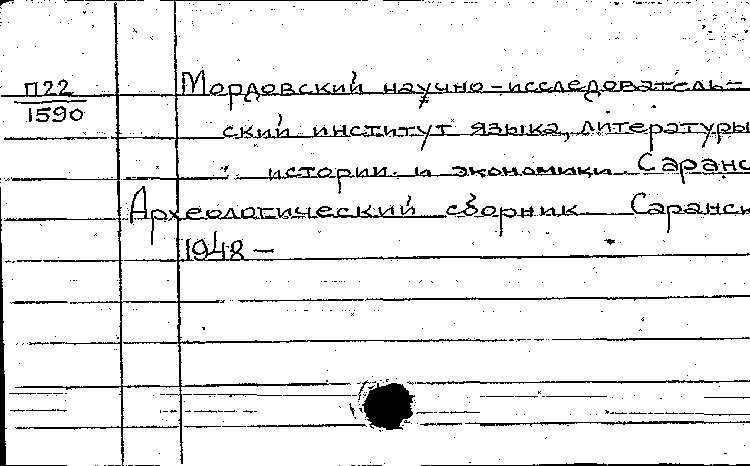 П22
1590
Мордовский научно-исследователь-
ский институт языка, литературы
истории и экономики Саранс
Археологический сборник Саранск
1948 —